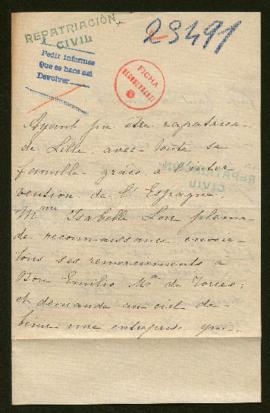 REPATRIACIÓN
CIVIL
29491
Pedir informes
Que se hace así
Devolver
FICHA
Ayant pu être rapatriée
de Lille avec toute sa
famille grâce à l'inter
vention de l'Espagne,
Mme Isabelle pleine
de reconnaissance envoie
tous ses remerciements à
Don Emilio Ma de Torres;
et demande au ciel de
bénir une entreprise qui